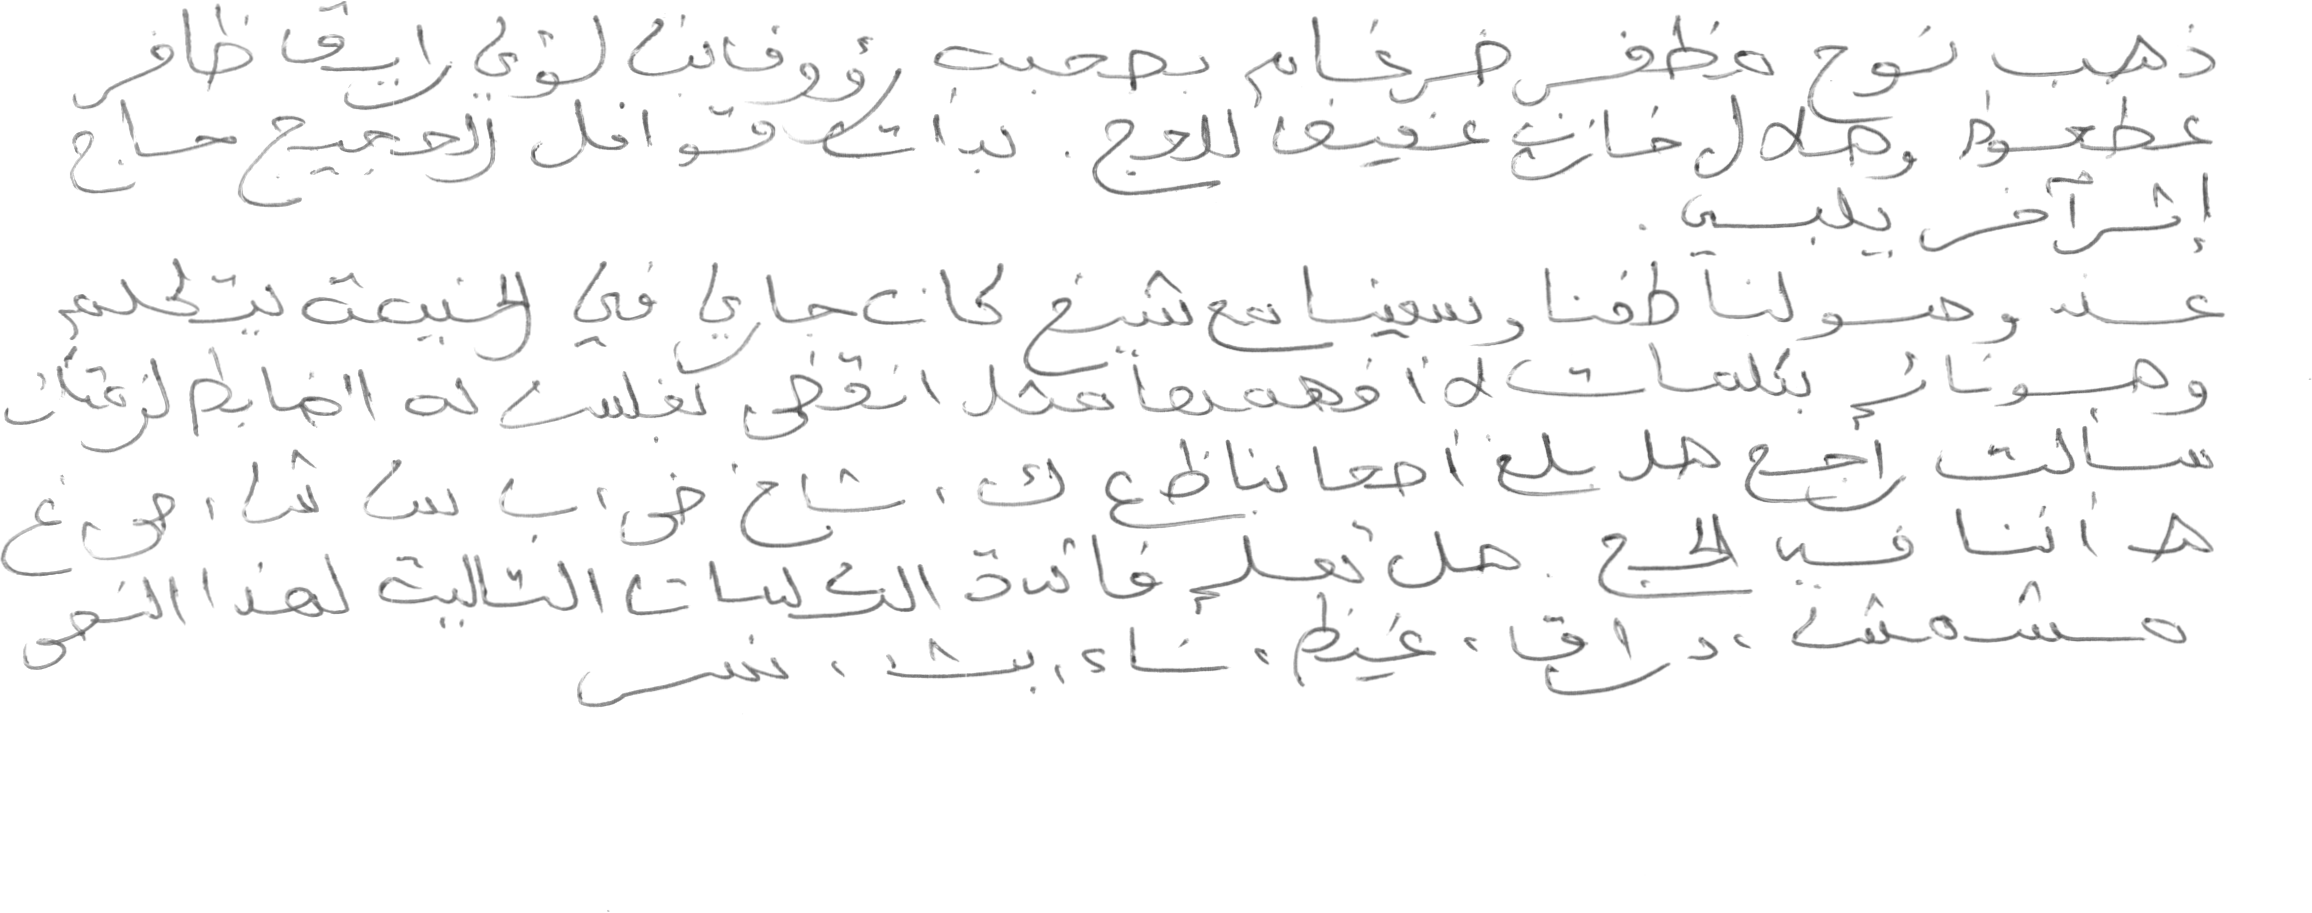 ذهب نوح مظفر ضرغام بصحبة رؤوف أنيس لؤي رايق ظافر
عطعوط وهلال خازن عفيف للحج . بدأت قوافل الحجيج حاج
إثر آخر يلبي .
عند وصولنا طفنا وسعينا مع شيخ كان جاري في الخيمة يتكلم
وهو نائم بكلمات لا أفهمها مثل انقض نفلس له الضابط
سألت راجح هل بلغ أحدا بنا ظ ع ك ، شاخ ض ، ب س ش ، ص غ
ه أننا في الحج . هل تعلم فائدة الكلمات التالية لهذا النص
مشمش ، دراق ، غيظ ، شاء ، بث ، نسر